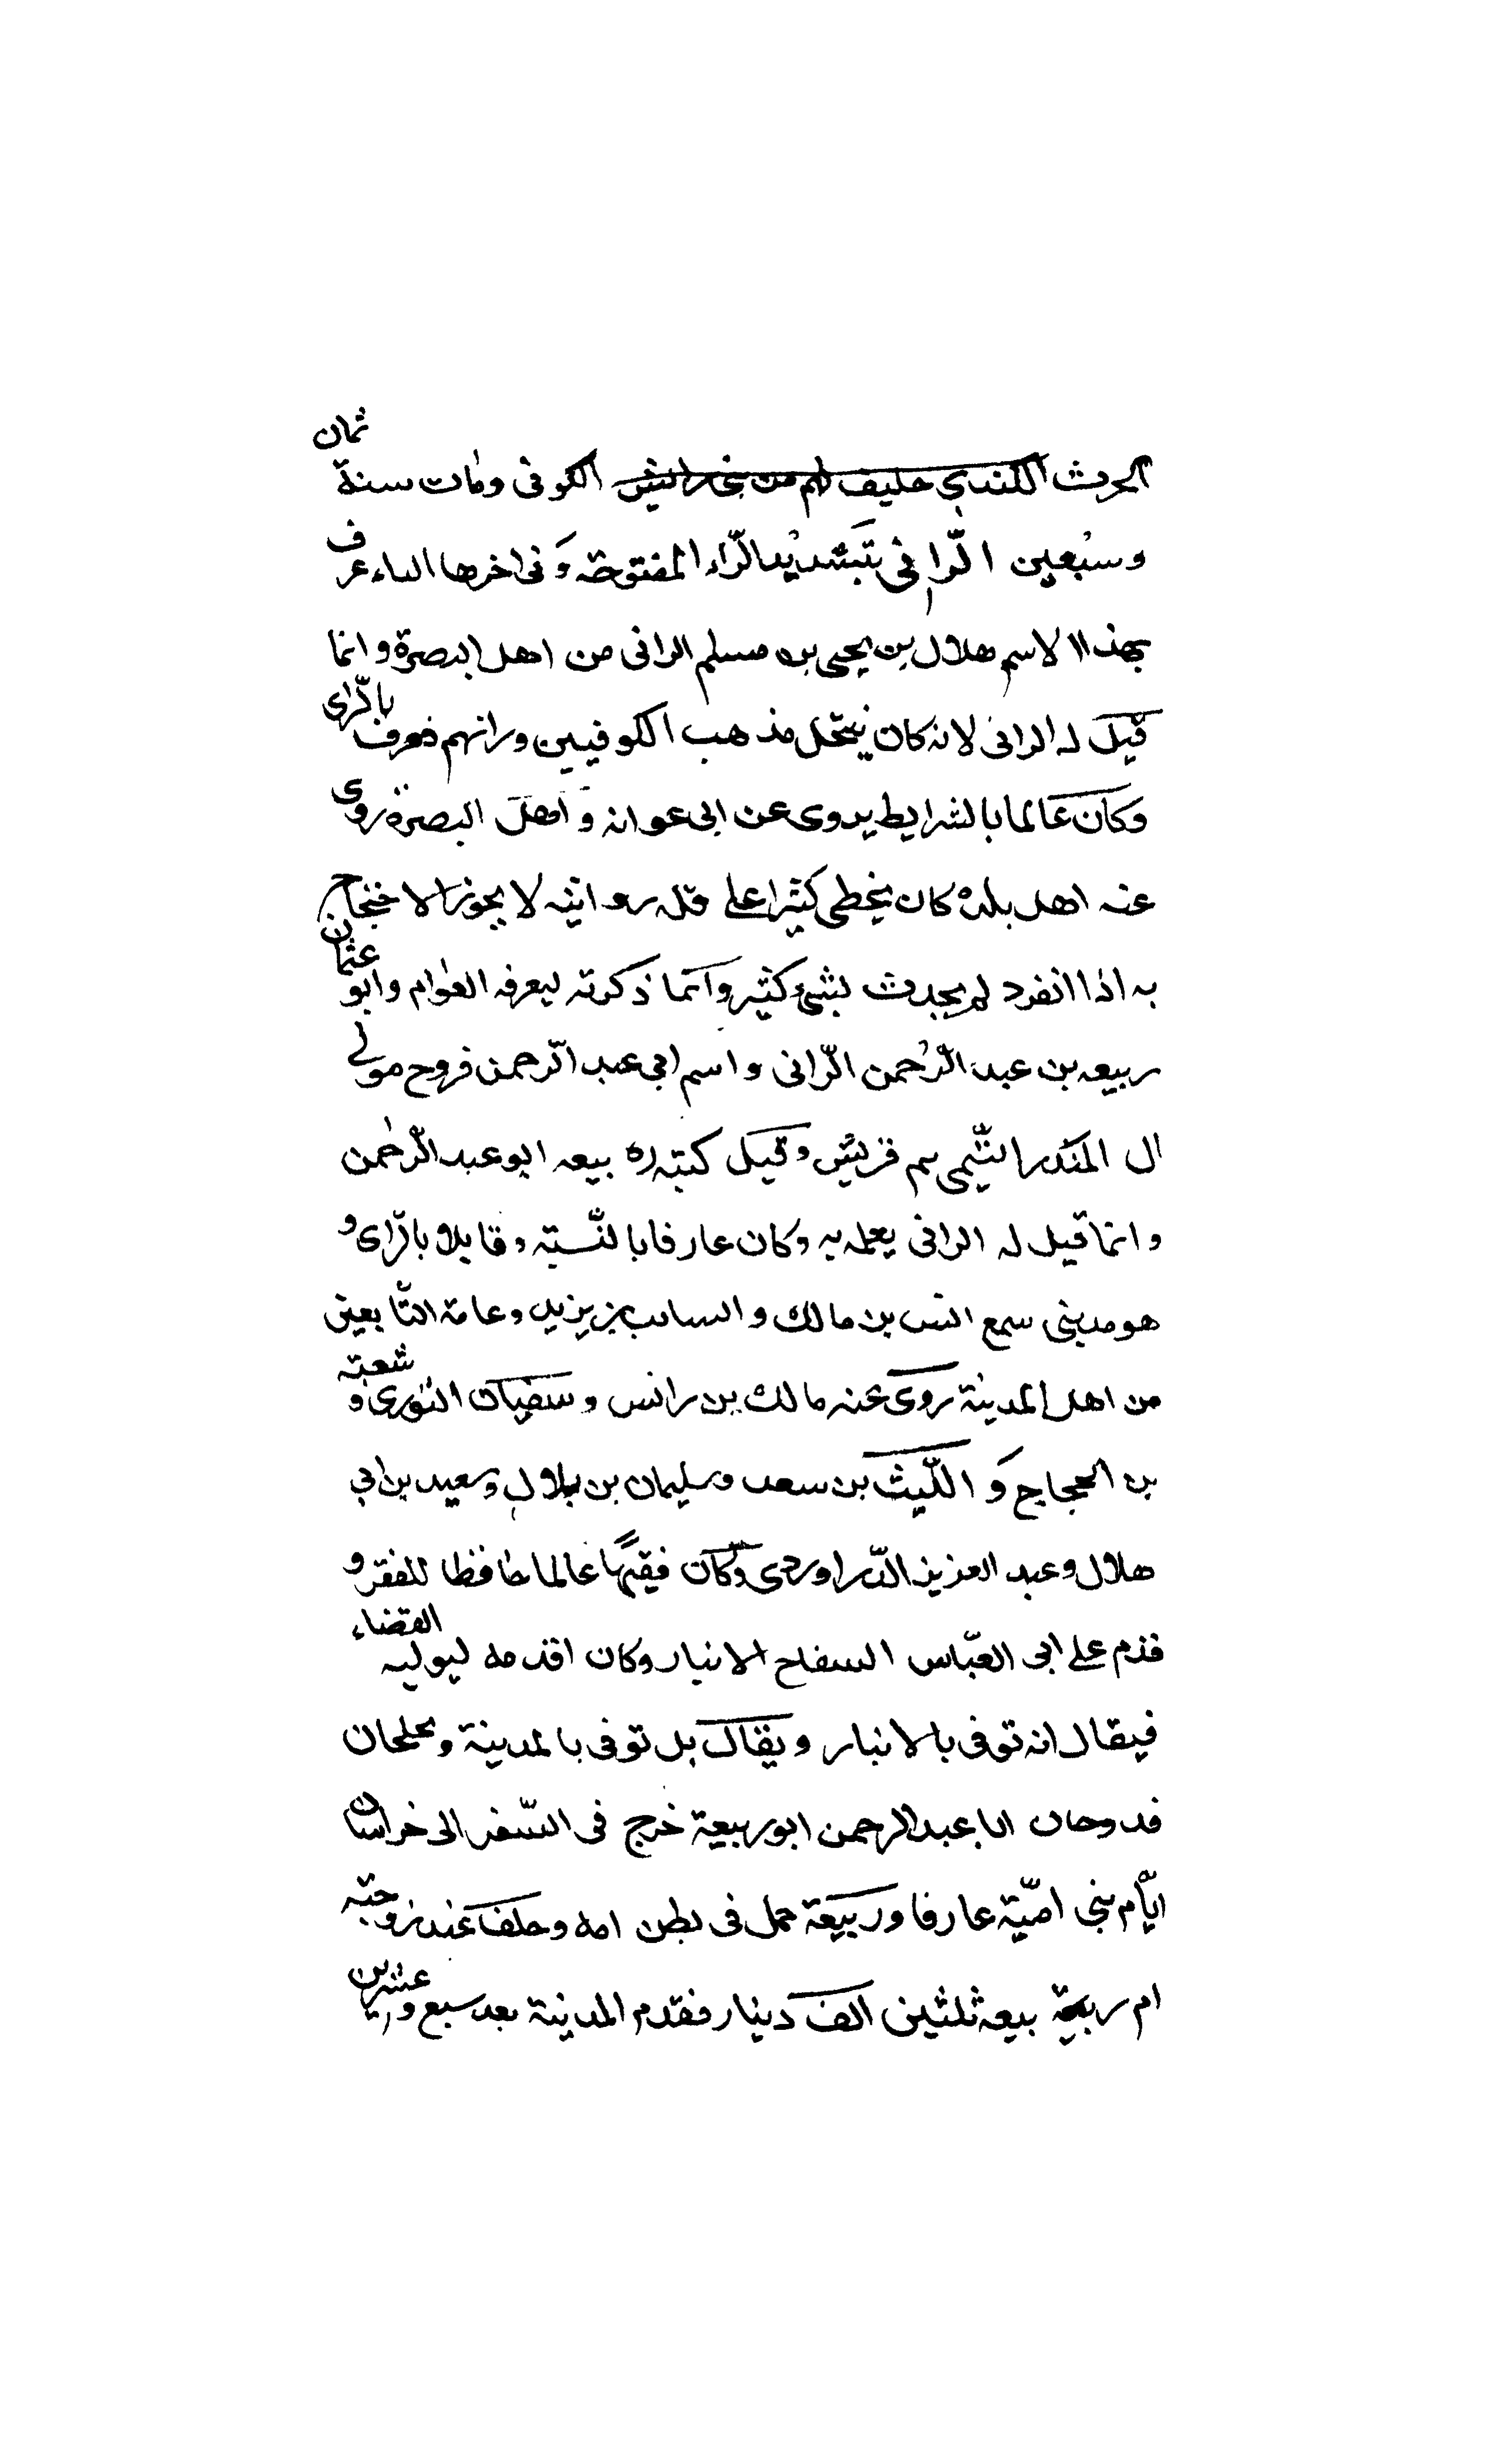 الحرث الكندي حليف لهم من بنى رائش الكوفى ومات سنة ثمان
وسبعين الرّانى بتشديد الرّاء المفتوحة وَفى اخرها الياء عرف
بهذا الاسم هلال بن يحيى بن مسلم الرانى من اهل البصرة وانما
قيل له الرانى لانه كان ينتحل مذهب الكوفيين ورانهم فعرف بالرّاى
وكان عالما بالشرايط يروى عن ابى عوانه وَاهل البصرة روى
عنه اهل بلده كان يخطى كثيرا على قله روايته لا يجوز الاحتجاج
به اذا انفرد لم يحدث بشئ كثير وانما ذكرته ليعرفه العوام وابو عثمان
ربيعه بن عبد الرّحمن الرّانى واسم ابى عبد الرّحمن فروح مولى
ال المنكدر التّيمى تيم قريش وقيل كنيته ربيعه ابو عبد الرّحمن
وانما قيل له الرانى لعلمه به وكان عارفا بالسّنة وقايلا بالرّاى و
هو مدينى سمع انس بن مالك والسايب بن يزيد وعامة التّابعين
من اهل المدينة روى عنه مالك بن انس وسفيان الثورى و شعبته
بن الحجاج وَ اللّيث بن سعد وسليمان بن بلال وسعيد بن ابى
هلال وعبد العزيز الدّراوردى وَكان فقيهًا عالما حافظا للفقه و
قدم على ابى العبّاس السفاح الانبار وكان اقدمه ليوليه القضاء
فيقال انه توفى بالانبار ويقال بل توفى بالمدينة
ابا عبد الرحمن ابو ربيعة خرج فى السّفر الى خراسان
ايّام بنى اميّة عارفا وربيعة حمل فى بطن امه وخلف عند زوجته
ام ربيعة بيعه ثلثين الف دينار فقدم المدينة بعد سبع وعشرين